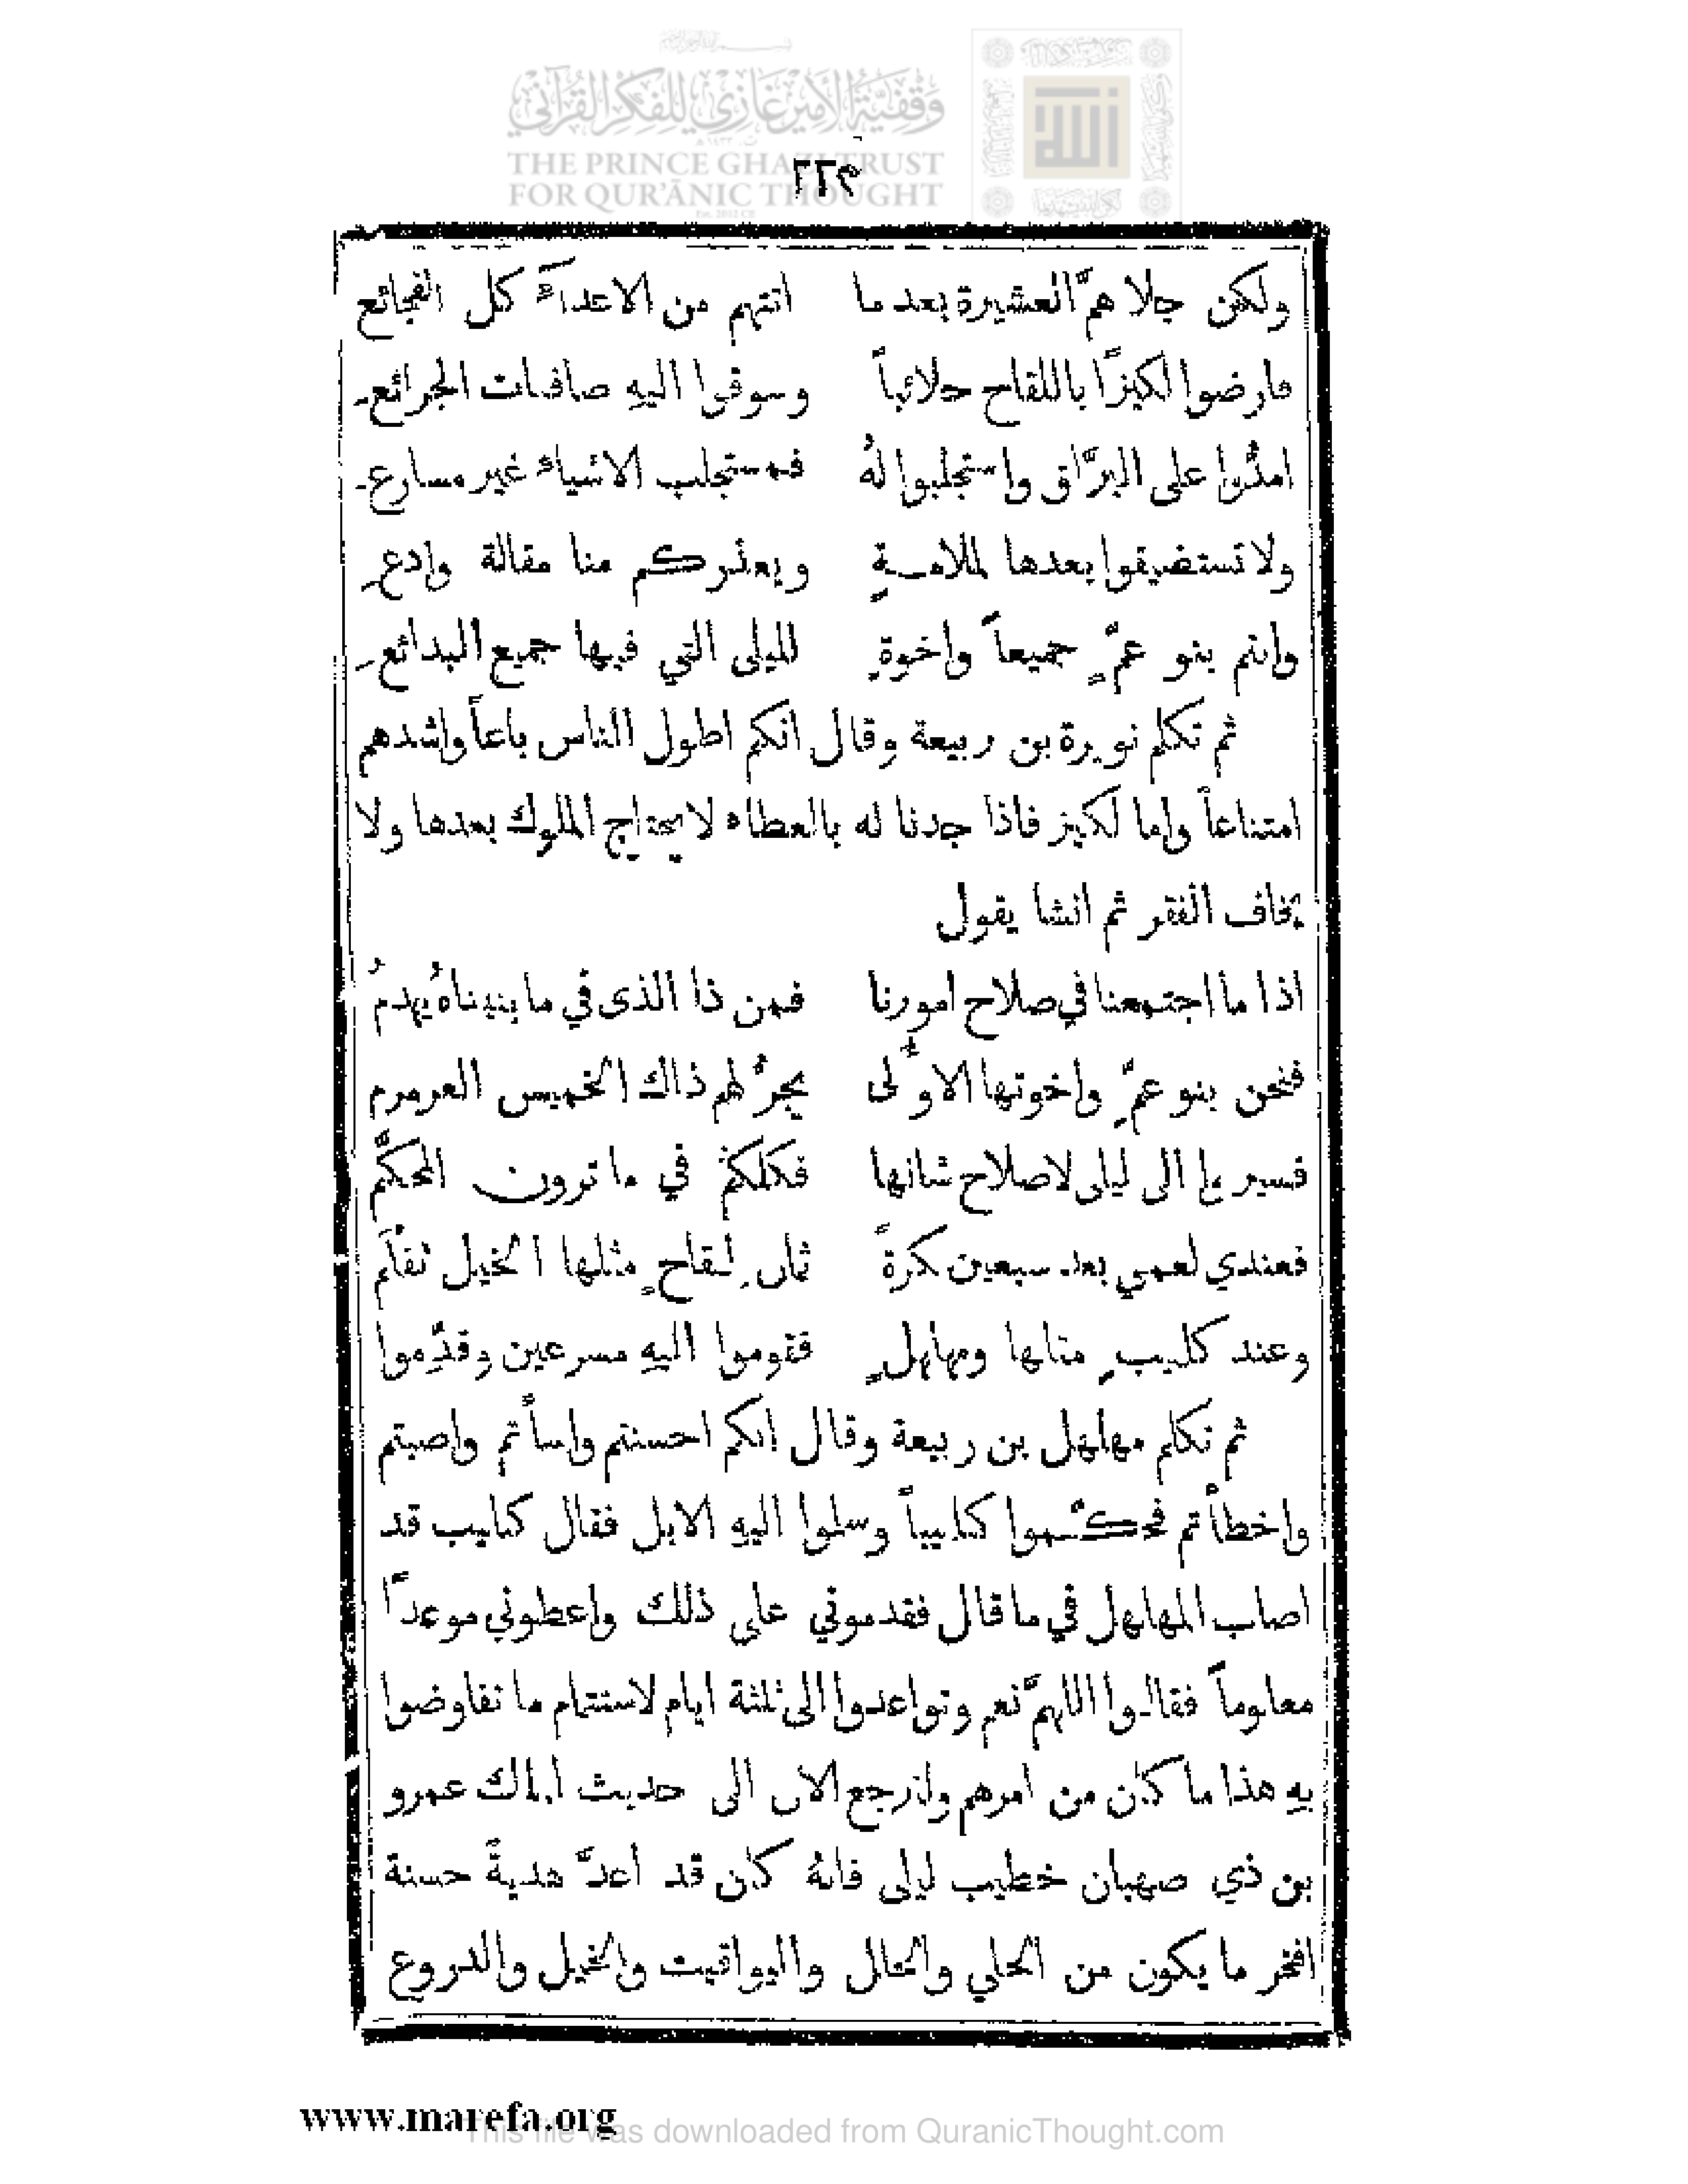 وقفية الأمير غازي للفكر القرآني
THE PRINCE GHAZI TRUST
FOR QUR'ĀNIC THOUGHT
٢٢٩
ولكن جلا همَّ العشيرة بعد ما انتهم من الاعداءَ كل الفجائع
فارضوا لكيزًا باللقاح حلائباً وسوقوا اليهِ صافنات الجرائعِ
امدُّوا على البرَّاق واستجلبوا لهُ فمستجلب الاشياء غير مسارعِ
ولا تستضيقوا بعدها لملامــةٍ ويعذركم منا مقالة وادعِ
وانتم بنو عمٍّ جميعاً واخوةٍ لليلى التي فيها جميع البدائعِ
ثم تكلم نويرة بن ربيعة وقال انكم اطول الناس باعاً واشدهم
امتناعاً واما لكيز فاذا جدنا له بالعطاء لا يحتاج الملوك بعدها ولا
يخاف الفقر ثم انشا يقول
اذا ما اجتمعنا في صلاح امورنا فمن ذا الذى في ما بنيناهُ يهدمُ
فنحن بنو عمٍّ واخوتها الأولى يجرُّ لهم ذاك الخميس العرمرم
فسيروا الى ليلى لاصلاح شانها فكلكمُ في ما ترون المحكَّم
فعندي لعمي بعد سبعين كرةً ثمان لقاحٍ مثلها الخيل
وعند كليبٍ مثلها ومهلهلٍ فقوموا اليهِ مسرعين وقدّموا
ثم تكلم مهلهل بن ربيعة وقال انكم احسنتم واسأتم واصبتم
واخطأتم فحكّموا كليباً وسلموا اليهِ الابل فقال كليب قد
اصاب المهلهل في ما قال فقدموني على ذلك واعطوني موعدًا
معلوماً فقالوا اللهمَّ نعم وتواعدوا الى ثلثة ايام لاستتمام ما تفاوضوا
بهِ هذا ما كان من امرهم ولنرجع الان الى حديث الملك عمرو
بن ذي صهبان خطيب ليلى فانهُ كان قد أعدَّ هديةً حسنة
افخر ما يكون من الحلي والحلل واليواقيت والخيل والدروع
www.marefa.org
This file was downloaded from QuranicThought.com